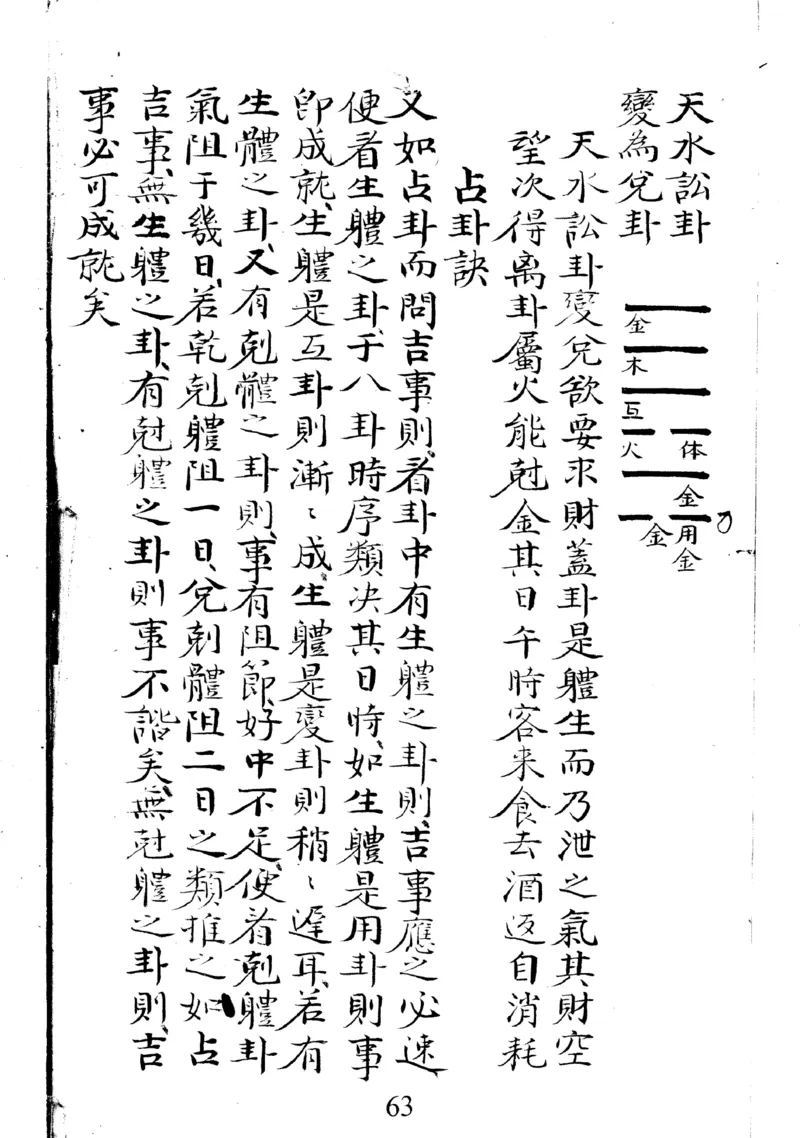 天水訟卦
變為兌卦
金
木
互
火
体
金
用
金
金
天水訟卦變兌欲要求財蓋卦是軆生而乃泄之氣其財空
望次得离卦屬火能尅金其日午時客来食去酒返自消耗
占卦訣
又如占卦而問吉事則看卦中有生軆之卦則吉事應之必速
便看生軆之卦于八卦時序類决其日時如生軆是用卦則事
即成就生軆是互卦則漸〻成生軆是變卦則稍〻遲耳若有
生體之卦又有剋體之卦則事有阻節好中不足便看剋軆卦
氣阻于幾日若乾剋軆阻一日兌剋體阻二日之類推之如占
吉事無生軆之卦有尅軆之卦則事不諧矣無尅軆之卦則吉
事必可成就矣
63